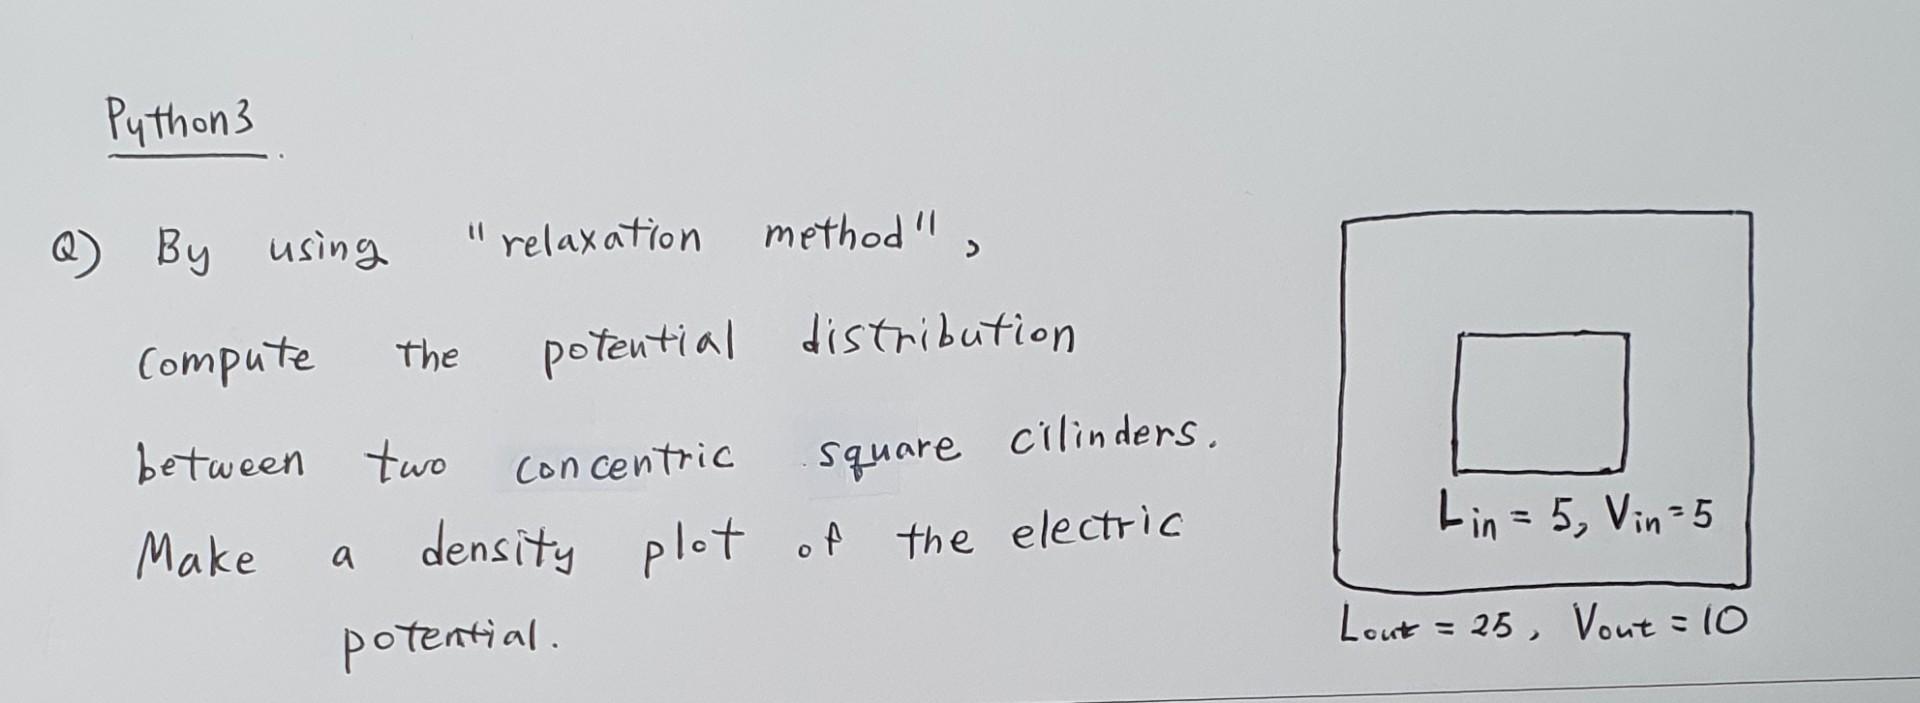 Python3
Q) By using "relaxation method",
compute the potential distribution
between two concentric square cilinders.
Make a density plot of the electric
potential.
Lin = 5, Vin = 5
Lout = 25, Vout = 10